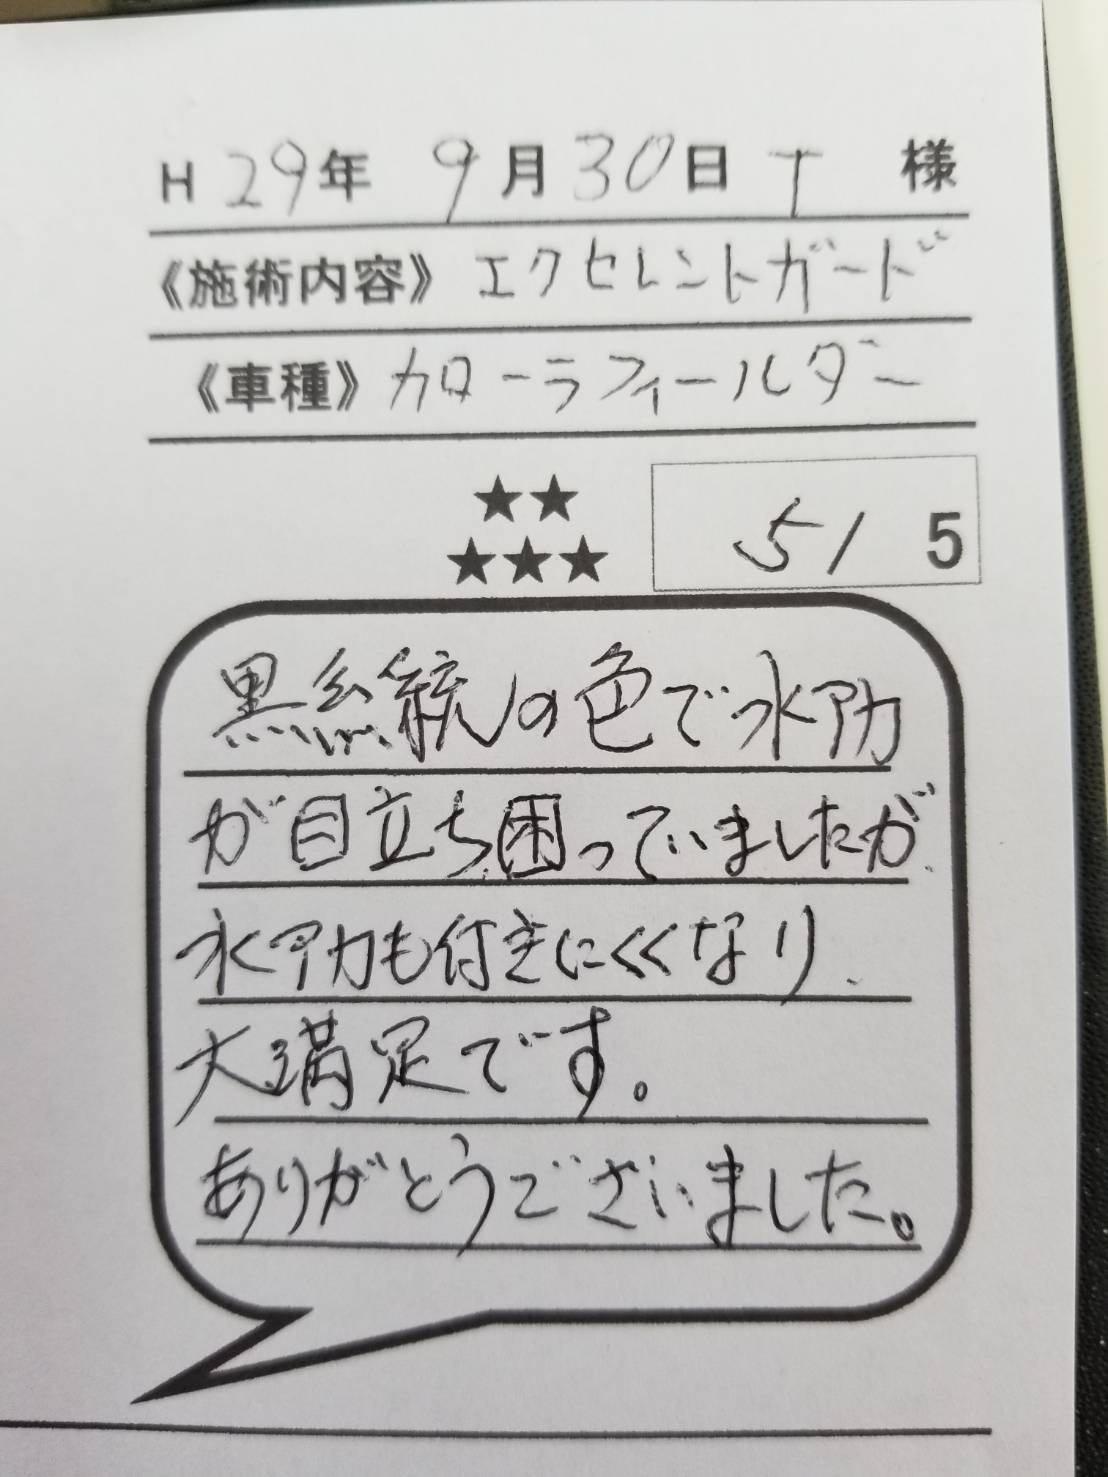 H 29年 9月30日 T 様
《施術内容》エクセレントガード
《車種》カローラフィールダー
★★
★★★
5/5
黒系統の色で水アカ
が目立ち困っていましたが
水アカも付きにくくなり、
大満足です。
ありがとうございました。